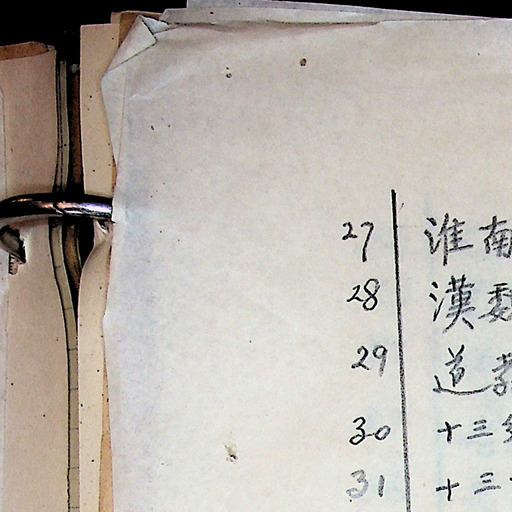 27 淮南
28 漢魏
29 道
30 十三
31 十三